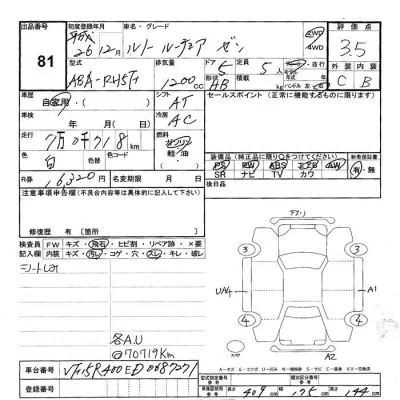 出品番号
81
初度登録年月
平成
26年 12月
車名・グレード
ルノー ルーテシア ゼン
2WD
4WD
評価点
3.5
型式
ABA-RH5F1
排気量
1200
CC
ドア
5
形状
HB
5人
ハンドル 左 右
外装
内装
C
B
車歴
自家用
シフト
AT
セールスポイント (正常に機能するものに限ります)
車検
年 月 日
冷房
AC
走行
7万0千718
km
燃料
ガソリン
軽・油
色
白
色替
色コード
装備品 (純正品に限り○をつけてください)
PS PW ABS エアB AW
SR ナビ TV カワ
新車保証書
有・無
R券
16,320円
名変期限 月 日
後日品
注意事項申告欄(不具合内容等は具体的に記入して下さい)
修復歴 有 [箇所
検査員記入欄
FW
キズ・飛石・ヒビ割・リペア跡・×要
内装
キズ・汚レ・コゲ・穴・スレ・キレ・破レ
各A.U
@70719Km
3
3
4
4
A1
A2
車台番号
VF15R400ED0687271
登録番号
型式指定番号
類別区分番号
長さ
409
幅
175
高さ
144